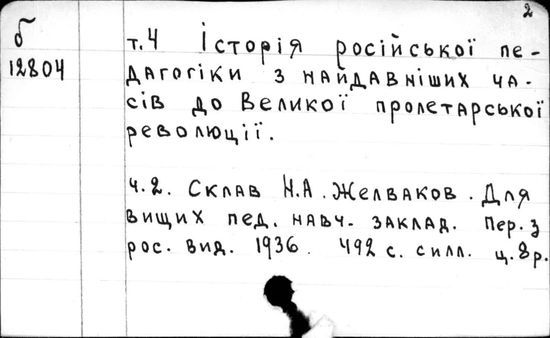 2
б
12804
т.4 Історія російської пе-
дагогіки з найдавніших ча-
сів до Великої пролетарської
революції.
ч.2. Склав Н.А. Желваков. Для
вищих пед. навч. заклад. Пер. з
рос. вид. 1936. 492 с. силл. ц. 8 р.